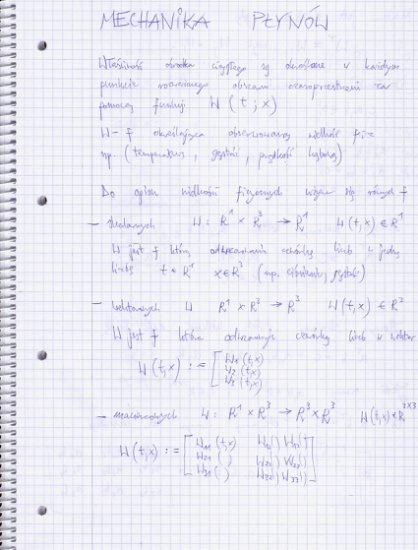 MECHANIKA PŁYNÓW
Właściwość ośrodka ciągłego są określone w każdym
punkcie rozważanego obszaru czasoprzestrzeni za
pomocą funkcji W (t, x)
W - f określająca obserwowaną wielkość fiz
np. (temperatura, gęstość, prędkość
Do opisu wielkości fizycznych używa się różnych f
- skalarnych W: R¹ × R³ → R¹ W(t,x) ∈ R¹
W jest f która odwzorowuje czwórkę liczb w jedną
liczbę t ∈ R¹ x ∈ R³ (np. ciśnienie, gęstość)
- wektorowych W R¹ × R³ → R³ W(t,x) ∈ R³
W jest f która odwzorowuje czwórkę liczb w wektor
W(t,x) := [ W₁(t,x)
W₂(t,x)
W₃(t,x) ]
- macierzowych W: R¹ × R³ → R³ × R³ W(t,x) ∈ R³ˣ³
W(t,x) := [ W₁₁(t,x) W₁₂( ) W₁₃( )
W₂₁( ) W₂₂( ) W₂₃( )
W₃₁( ) W₃₂( ) W₃₃( ) ]